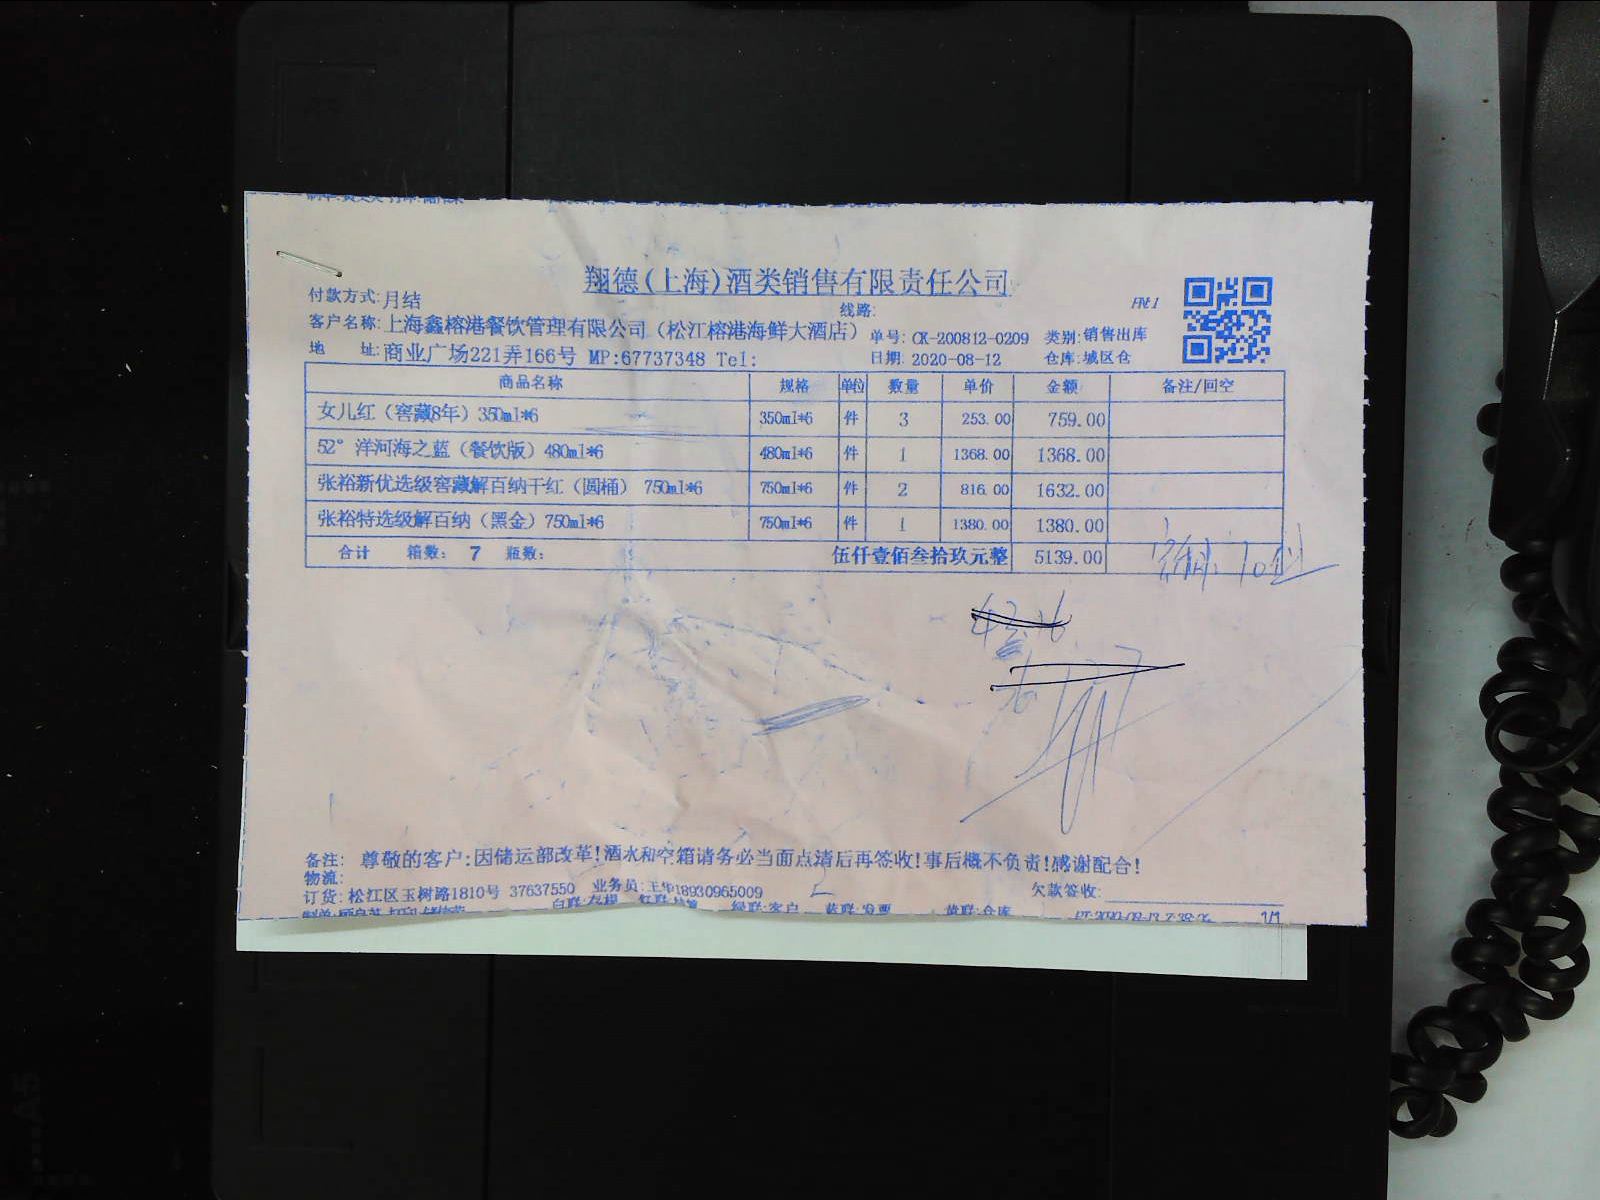 翔德(上海)酒类销售有限责任公司
付款方式:月结
线路:
客户名称:上海鑫榕港餐饮管理有限公司（松江榕港海鲜大酒店） 单号: CK-200812-0209 类别:销售出库
地 址:商业广场221弄166号 MP:67737348 Tel: 日期: 2020-08-12 仓库:城区仓
商品名称 规格 单位 数量 单价 金额 备注/回空
女儿红（窖藏8年）350ml*6 350ml*6 件 3 253.00 759.00
52°洋河海之蓝（餐饮版）480ml*6 480ml*6 件 1 1368.00 1368.00
张裕新优选级窖藏解百纳干红（圆桶） 750ml*6 750ml*6 件 2 816.00 1632.00
张裕特选级解百纳（黑金）750ml*6 750ml*6 件 1 1380.00 1380.00
合计 箱数: 7 瓶数: 伍仟壹佰叁拾玖元整 5139.00
备注: 尊敬的客户:因储运部改革!酒水和空箱请务必当面点清后再签收!事后概不负责!感谢配合!
物流:
订货: 松江区玉树路1810号 37637550 业务员:王华18930965009 欠款签收:
白联:存根 绿联:客户 蓝联:发票 黄联:仓库 1/1